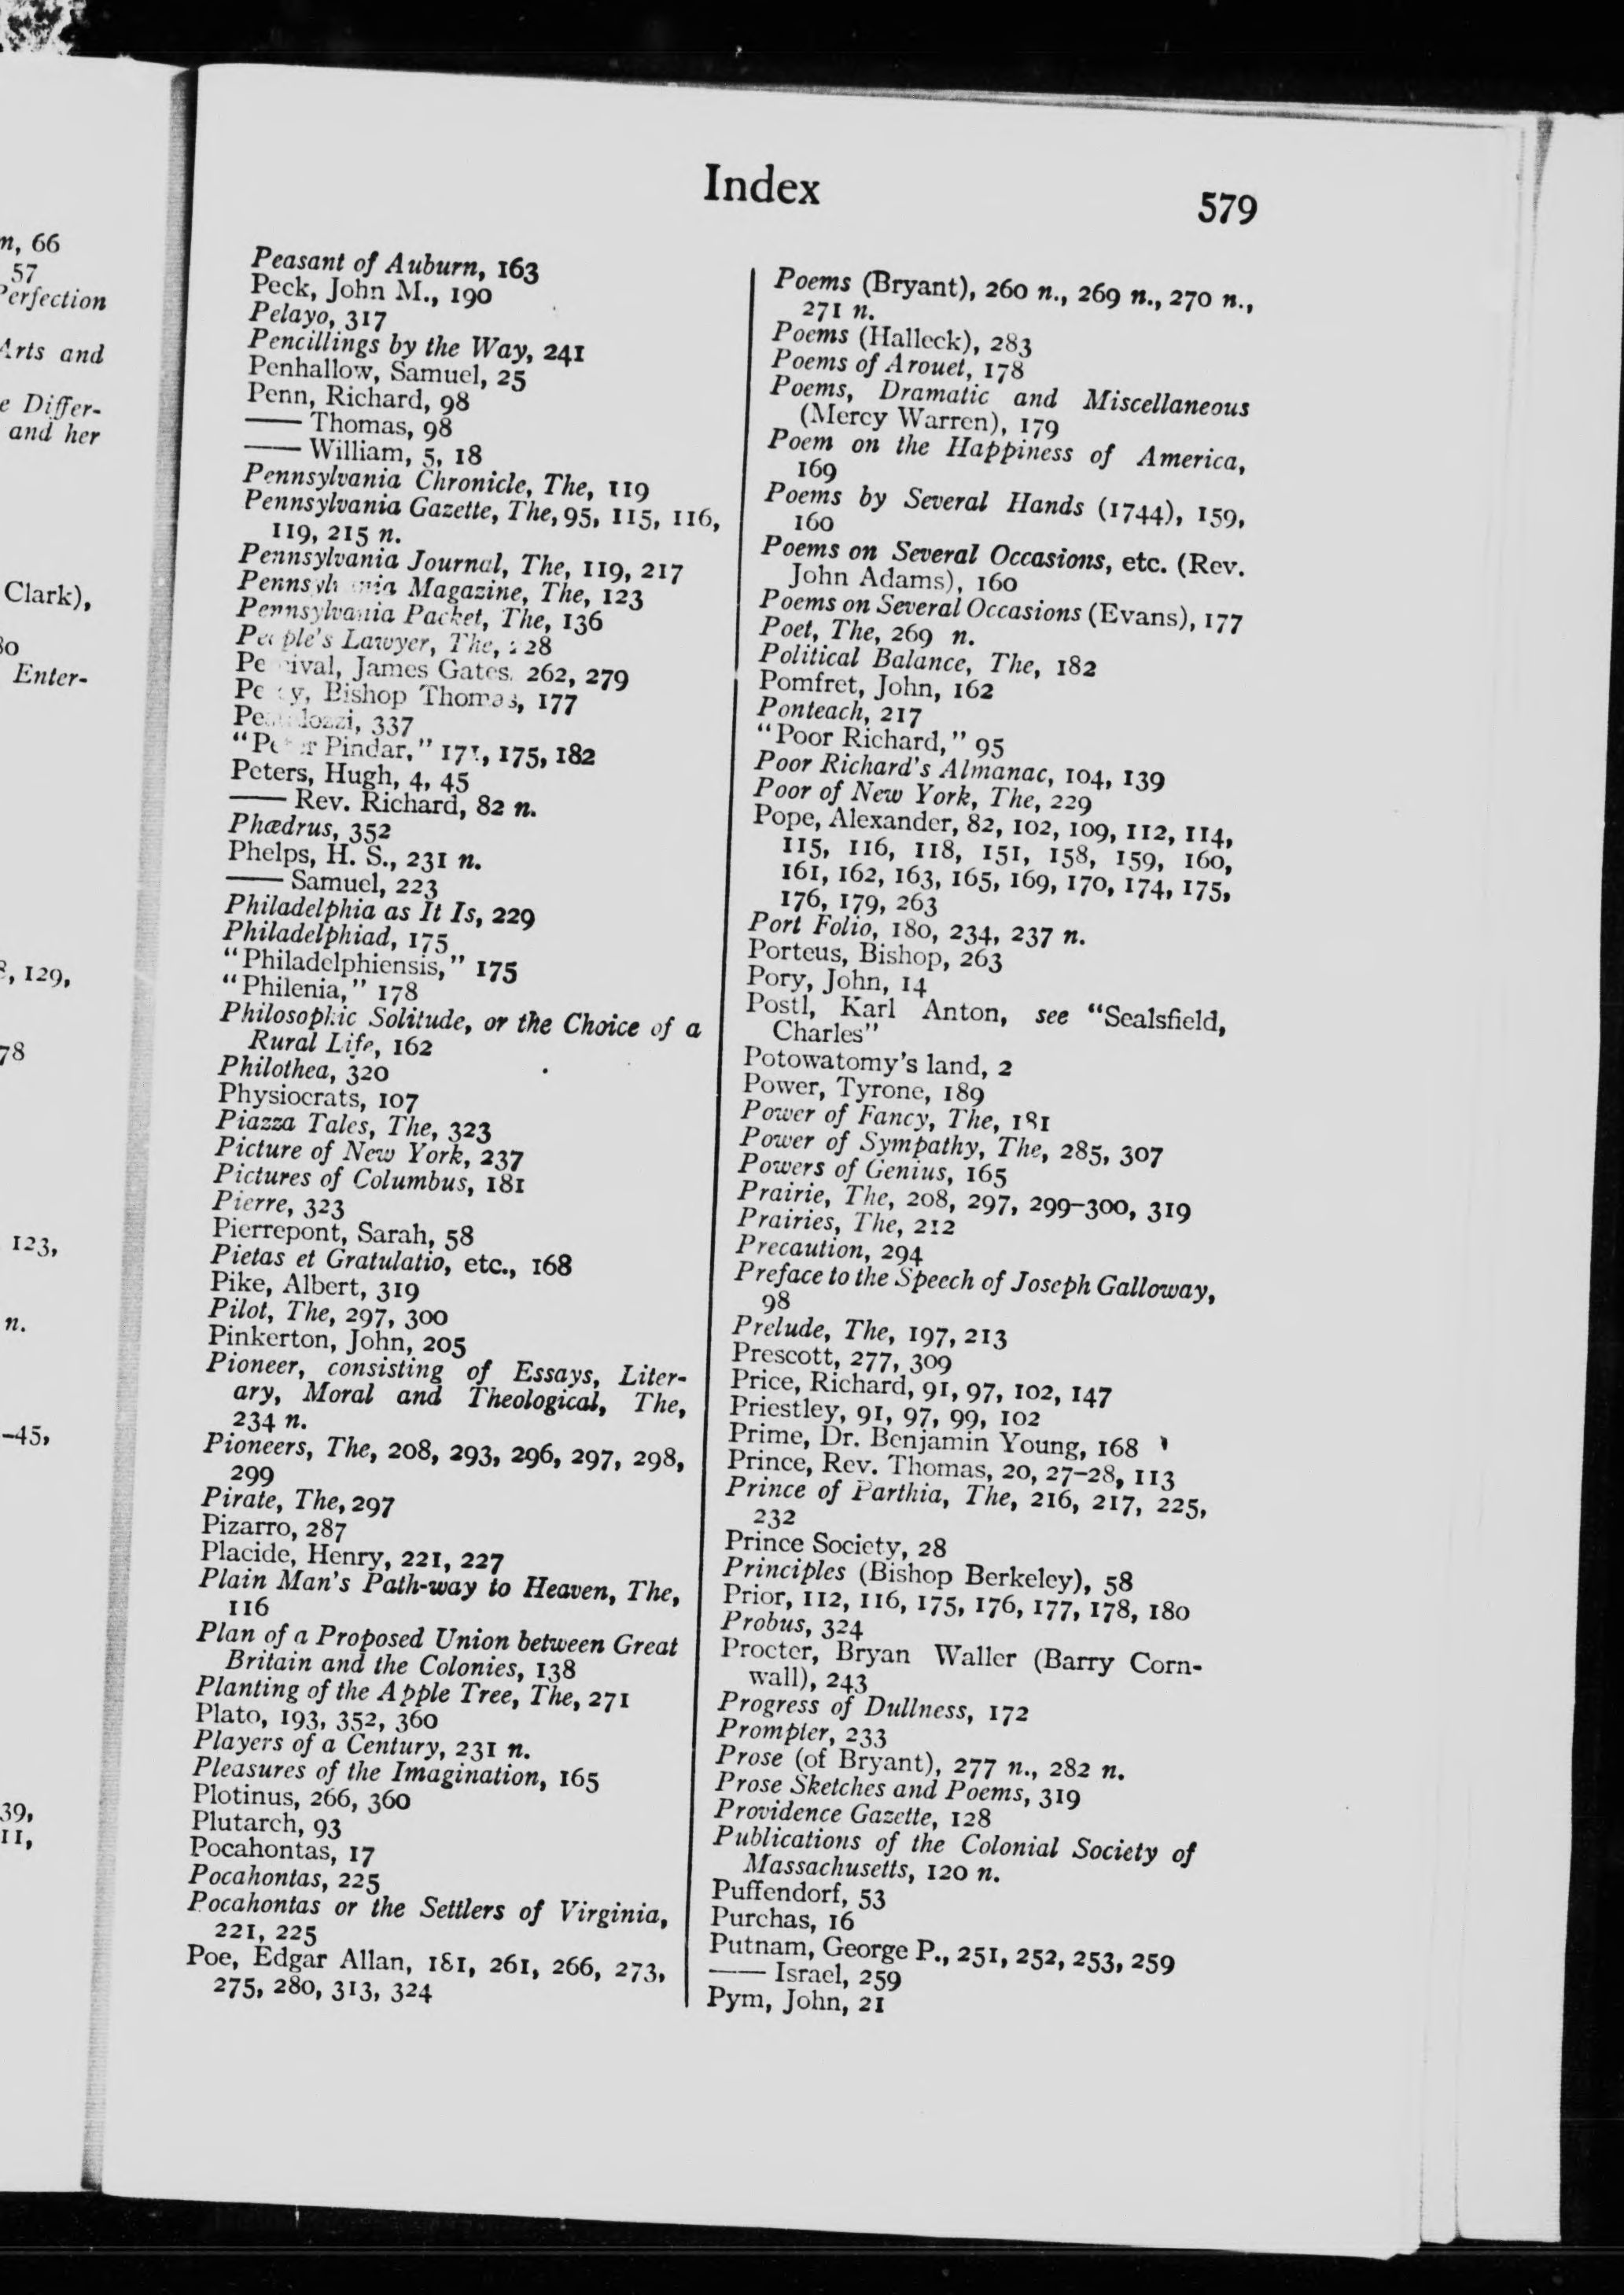 n, 66
57
Perfection
Arts and
e Differ-
and her
Clark),
80
Enter-
129,
78
123,
n.
-45,
39,
11,
Index
579
Peasant of Auburn, 163
Peck, John M., 190
Pelayo, 317
Pencillings by the Way, 241
Penhallow, Samuel, 25
Penn, Richard, 98
—— Thomas, 98
—— William, 5, 18
Pennsylvania Chronicle, The, 119
Pennsylvania Gazette, The, 95, 115, 116,
119, 215 n.
Pennsylvania Journal, The, 119, 217
Pennsylvania Magazine, The, 123
Pennsylvania Packet, The, 136
People's Lawyer, The, 228
Percival, James Gates, 262, 279
Percy, Bishop Thomas, 177
337
"Peter Pindar," 171, 175, 182
Peters, Hugh, 4, 45
—— Rev. Richard, 82 n.
Phædrus, 352
Phelps, H. S., 231 n.
—— Samuel, 223
Philadelphia as It Is, 229
Philadelphiad, 175
"Philadelphiensis," 175
"Philenia," 178
Philosophic Solitude, or the Choice of a
Rural Life, 162
Philothea, 320
Physiocrats, 107
Piazza Tales, The, 323
Picture of New York, 237
Pictures of Columbus, 181
Pierre, 323
Pierrepont, Sarah, 58
Pietas et Gratulatio, etc., 168
Pike, Albert, 319
Pilot, The, 297, 300
Pinkerton, John, 205
Pioneer, consisting of Essays, Liter-
ary, Moral and Theological, The,
234 n.
Pioneers, The, 208, 293, 296, 297, 298,
299
Pirate, The, 297
Pizarro, 287
Placide, Henry, 221, 227
Plain Man's Path-way to Heaven, The,
116
Plan of a Proposed Union between Great
Britain and the Colonies, 138
Planting of the Apple Tree, The, 271
Plato, 193, 352, 360
Players of a Century, 231 n.
Pleasures of the Imagination, 165
Plotinus, 266, 360
Plutarch, 93
Pocahontas, 17
Pocahontas, 225
Pocahontas or the Settlers of Virginia,
221, 225
Poe, Edgar Allan, 181, 261, 266, 273,
275, 280, 313, 324
Poems (Bryant), 260 n., 269 n., 270 n.,
271 n.
Poems (Halleck), 283
Poems of Arouet, 178
Poems, Dramatic and Miscellaneous
(Mercy Warren), 179
Poem on the Happiness of America,
169
Poems by Several Hands (1744), 159,
160
Poems on Several Occasions, etc. (Rev.
John Adams), 160
Poems on Several Occasions (Evans), 177
Poet, The, 269 n.
Political Balance, The, 182
Pomfret, John, 162
Ponteach, 217
"Poor Richard," 95
Poor Richard's Almanac, 104, 139
Poor of New York, The, 229
Pope, Alexander, 82, 102, 109, 112, 114,
115, 116, 118, 151, 158, 159, 160,
161, 162, 163, 165, 169, 170, 174, 175,
176, 179, 263
Port Folio, 180, 234, 237 n.
Porteus, Bishop, 263
Pory, John, 14
Postl, Karl Anton, see "Sealsfield,
Charles"
Potowatomy's land, 2
Power, Tyrone, 189
Power of Fancy, The, 181
Power of Sympathy, The, 285, 307
Powers of Genius, 165
Prairie, The, 208, 297, 299-300, 319
Prairies, The, 212
Precaution, 294
Preface to the Speech of Joseph Galloway,
98
Prelude, The, 197, 213
Prescott, 277, 309
Price, Richard, 91, 97, 102, 147
Priestley, 91, 97, 99, 102
Prime, Dr. Benjamin Young, 168
Prince, Rev. Thomas, 20, 27-28, 113
Prince of Parthia, The, 216, 217, 225,
232
Prince Society, 28
Principles (Bishop Berkeley), 58
Prior, 112, 116, 175, 176, 177, 178, 180
Probus, 324
Procter, Bryan Waller (Barry Corn-
wall), 243
Progress of Dullness, 172
Prompter, 233
Prose (of Bryant), 277 n., 282 n.
Prose Sketches and Poems, 319
Providence Gazette, 128
Publications of the Colonial Society of
Massachusetts, 120 n.
Puffendorf, 53
Purchas, 16
Putnam, George P., 251, 252, 253, 259
—— Israel, 259
Pym, John, 21